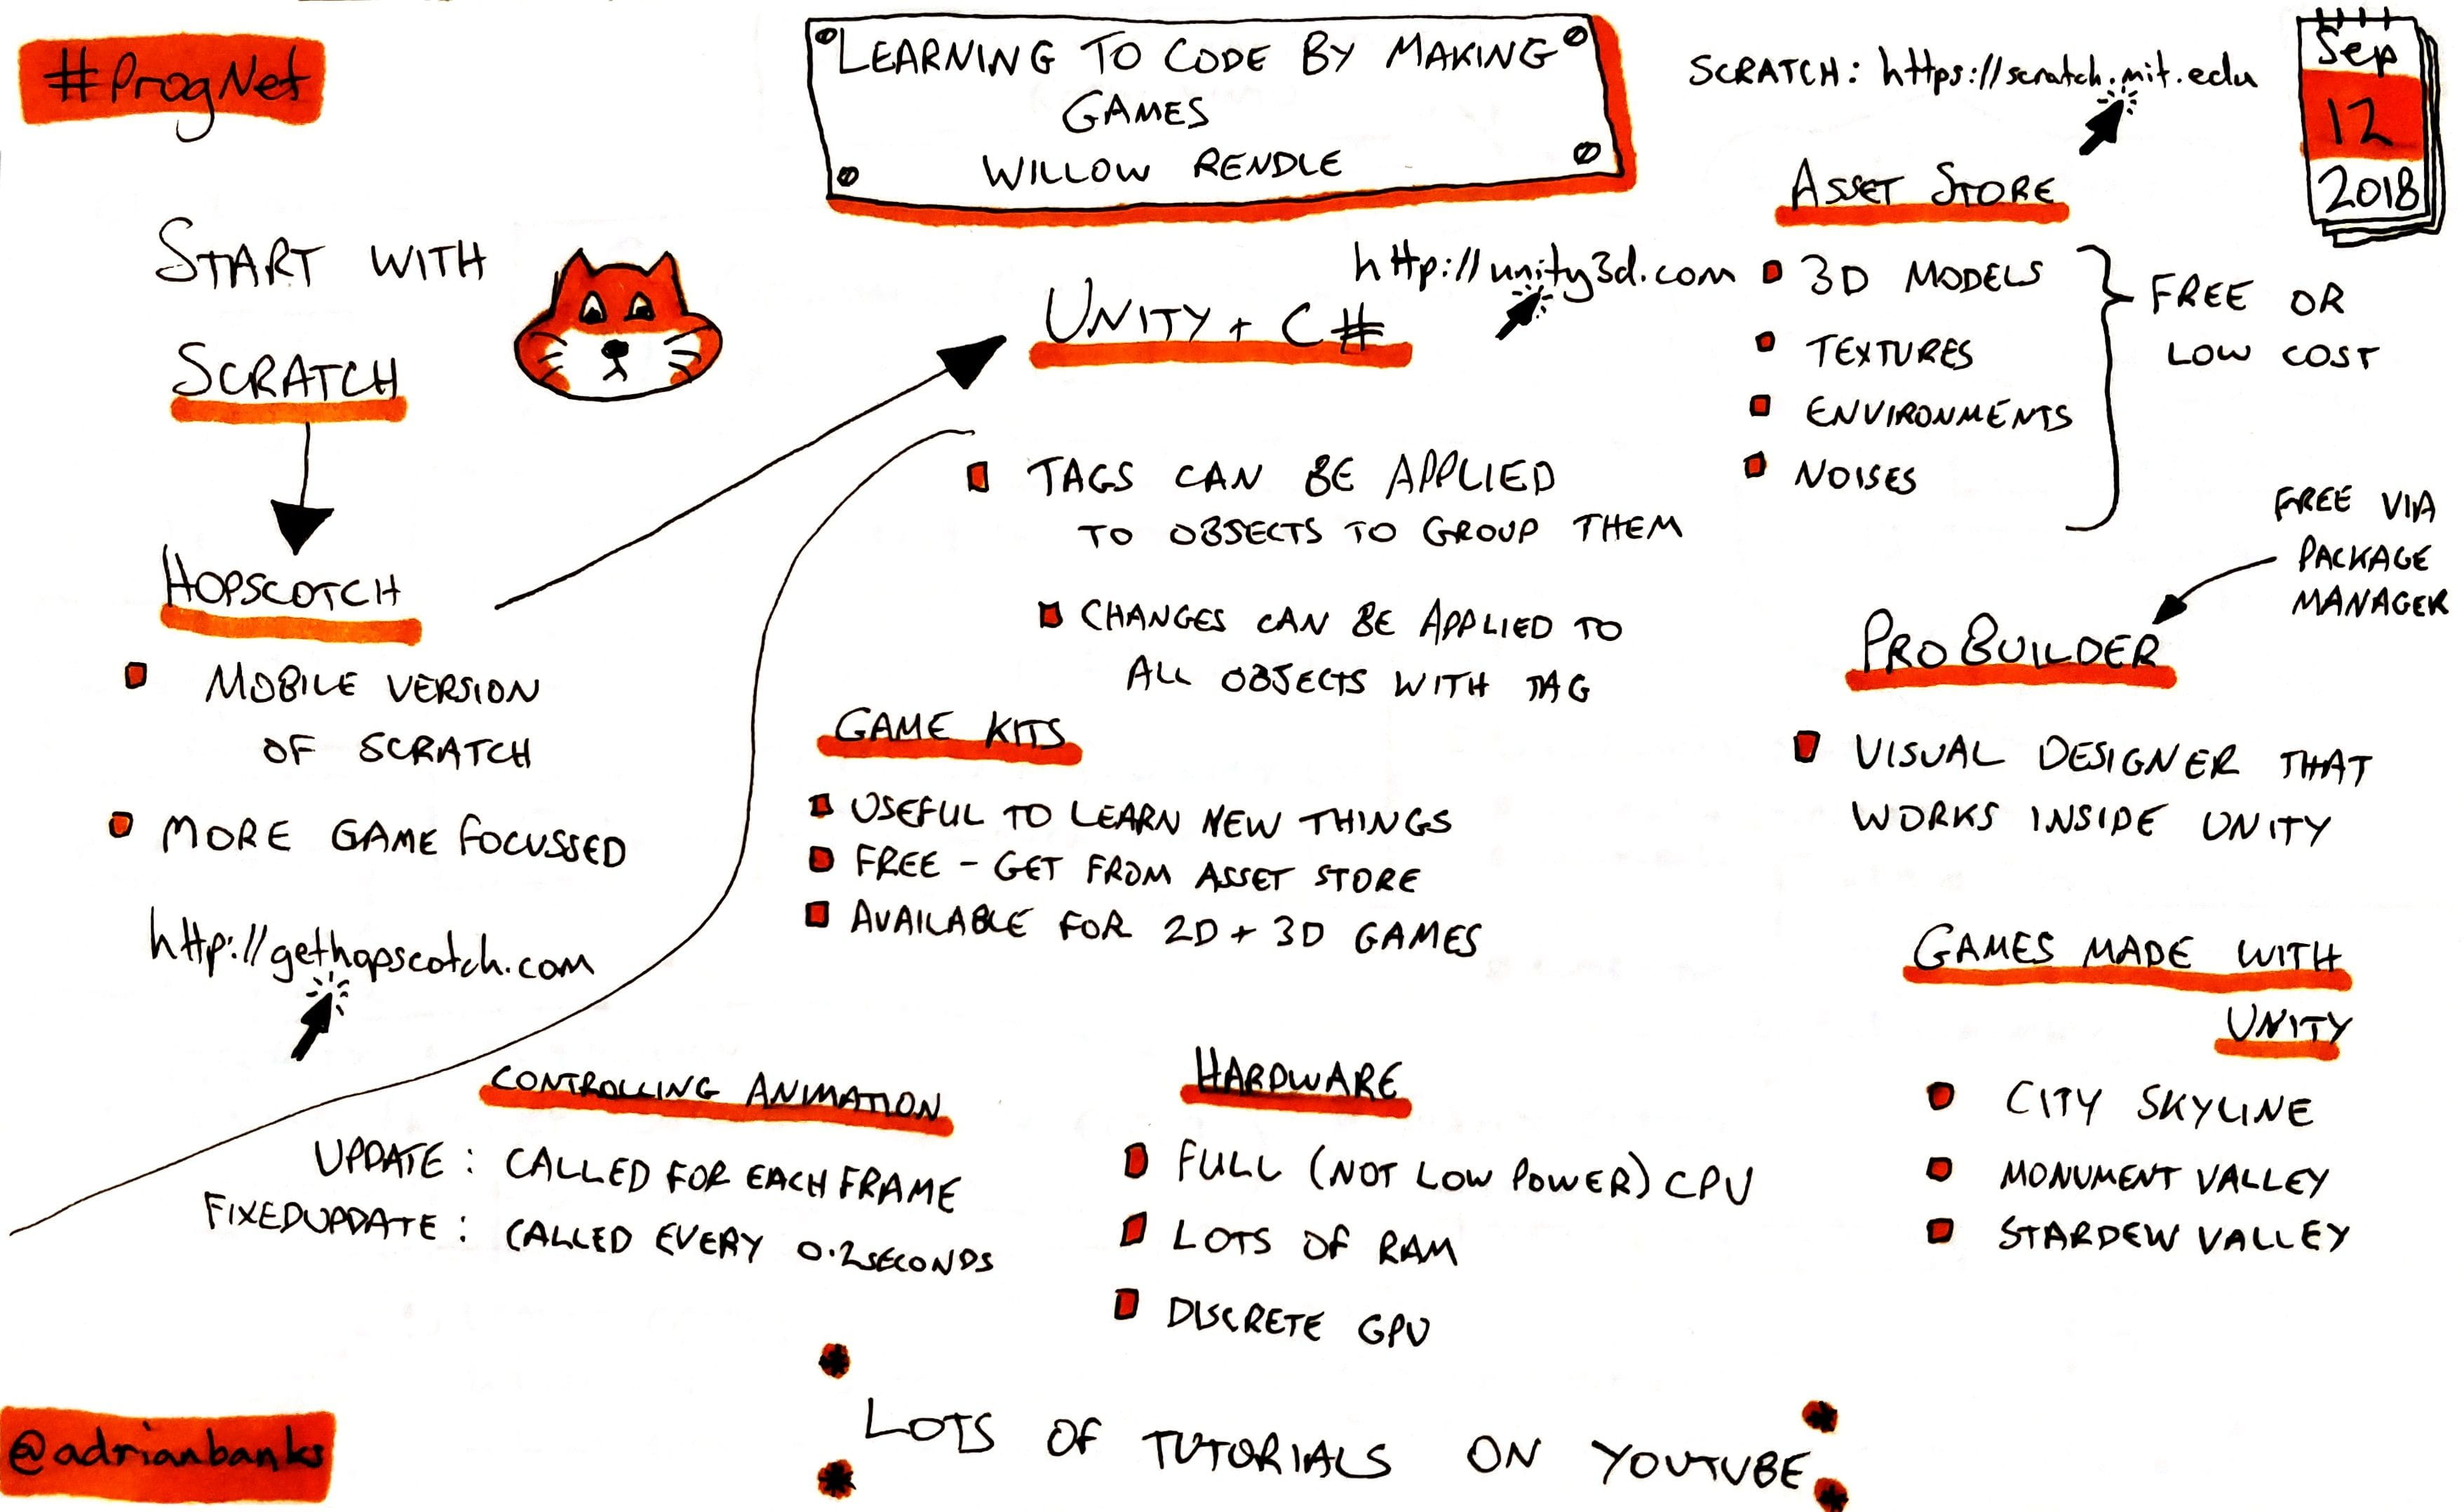 #ProgNet
LEARNING TO CODE BY MAKING
GAMES
WILLOW RENDLE
SCRATCH: https://scratch.mit.edu
Sep
12
2018
START WITH
SCRATCH
HOPSCOTCH
MOBILE VERSION
OF SCRATCH
MORE GAME FOCUSSED
http://gethopscotch.com
http://unity3d.com
UNITY + C#
TAGS CAN BE APPLIED
TO OBJECTS TO GROUP THEM
CHANGES CAN BE APPLIED TO
ALL OBJECTS WITH TAG
GAME KITS
USEFUL TO LEARN NEW THINGS
FREE - GET FROM ASSET STORE
AVAILABLE FOR 2D + 3D GAMES
CONTROLLING ANIMATION
UPDATE: CALLED FOR EACH FRAME
FIXEDUPDATE: CALLED EVERY 0.2SECONDS
HARDWARE
FULL (NOT LOW POWER) CPU
LOTS OF RAM
DISCRETE GPU
ASSET STORE
3D MODELS
TEXTURES
ENVIRONMENTS
NOISES
FREE OR
LOW COST
FREE VIA
PACKAGE
MANAGER
PRO BUILDER
VISUAL DESIGNER THAT
WORKS INSIDE UNITY
GAMES MADE WITH
UNITY
CITY SKYLINE
MONUMENT VALLEY
STARDEW VALLEY
LOTS OF TUTORIALS ON YOUTUBE
@adrianbanks